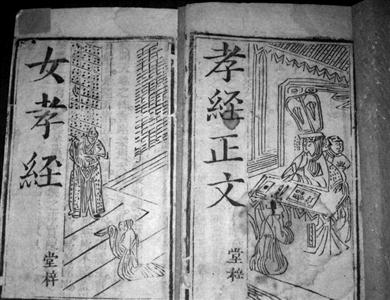 孝經正文
堂梓
女孝經
堂梓